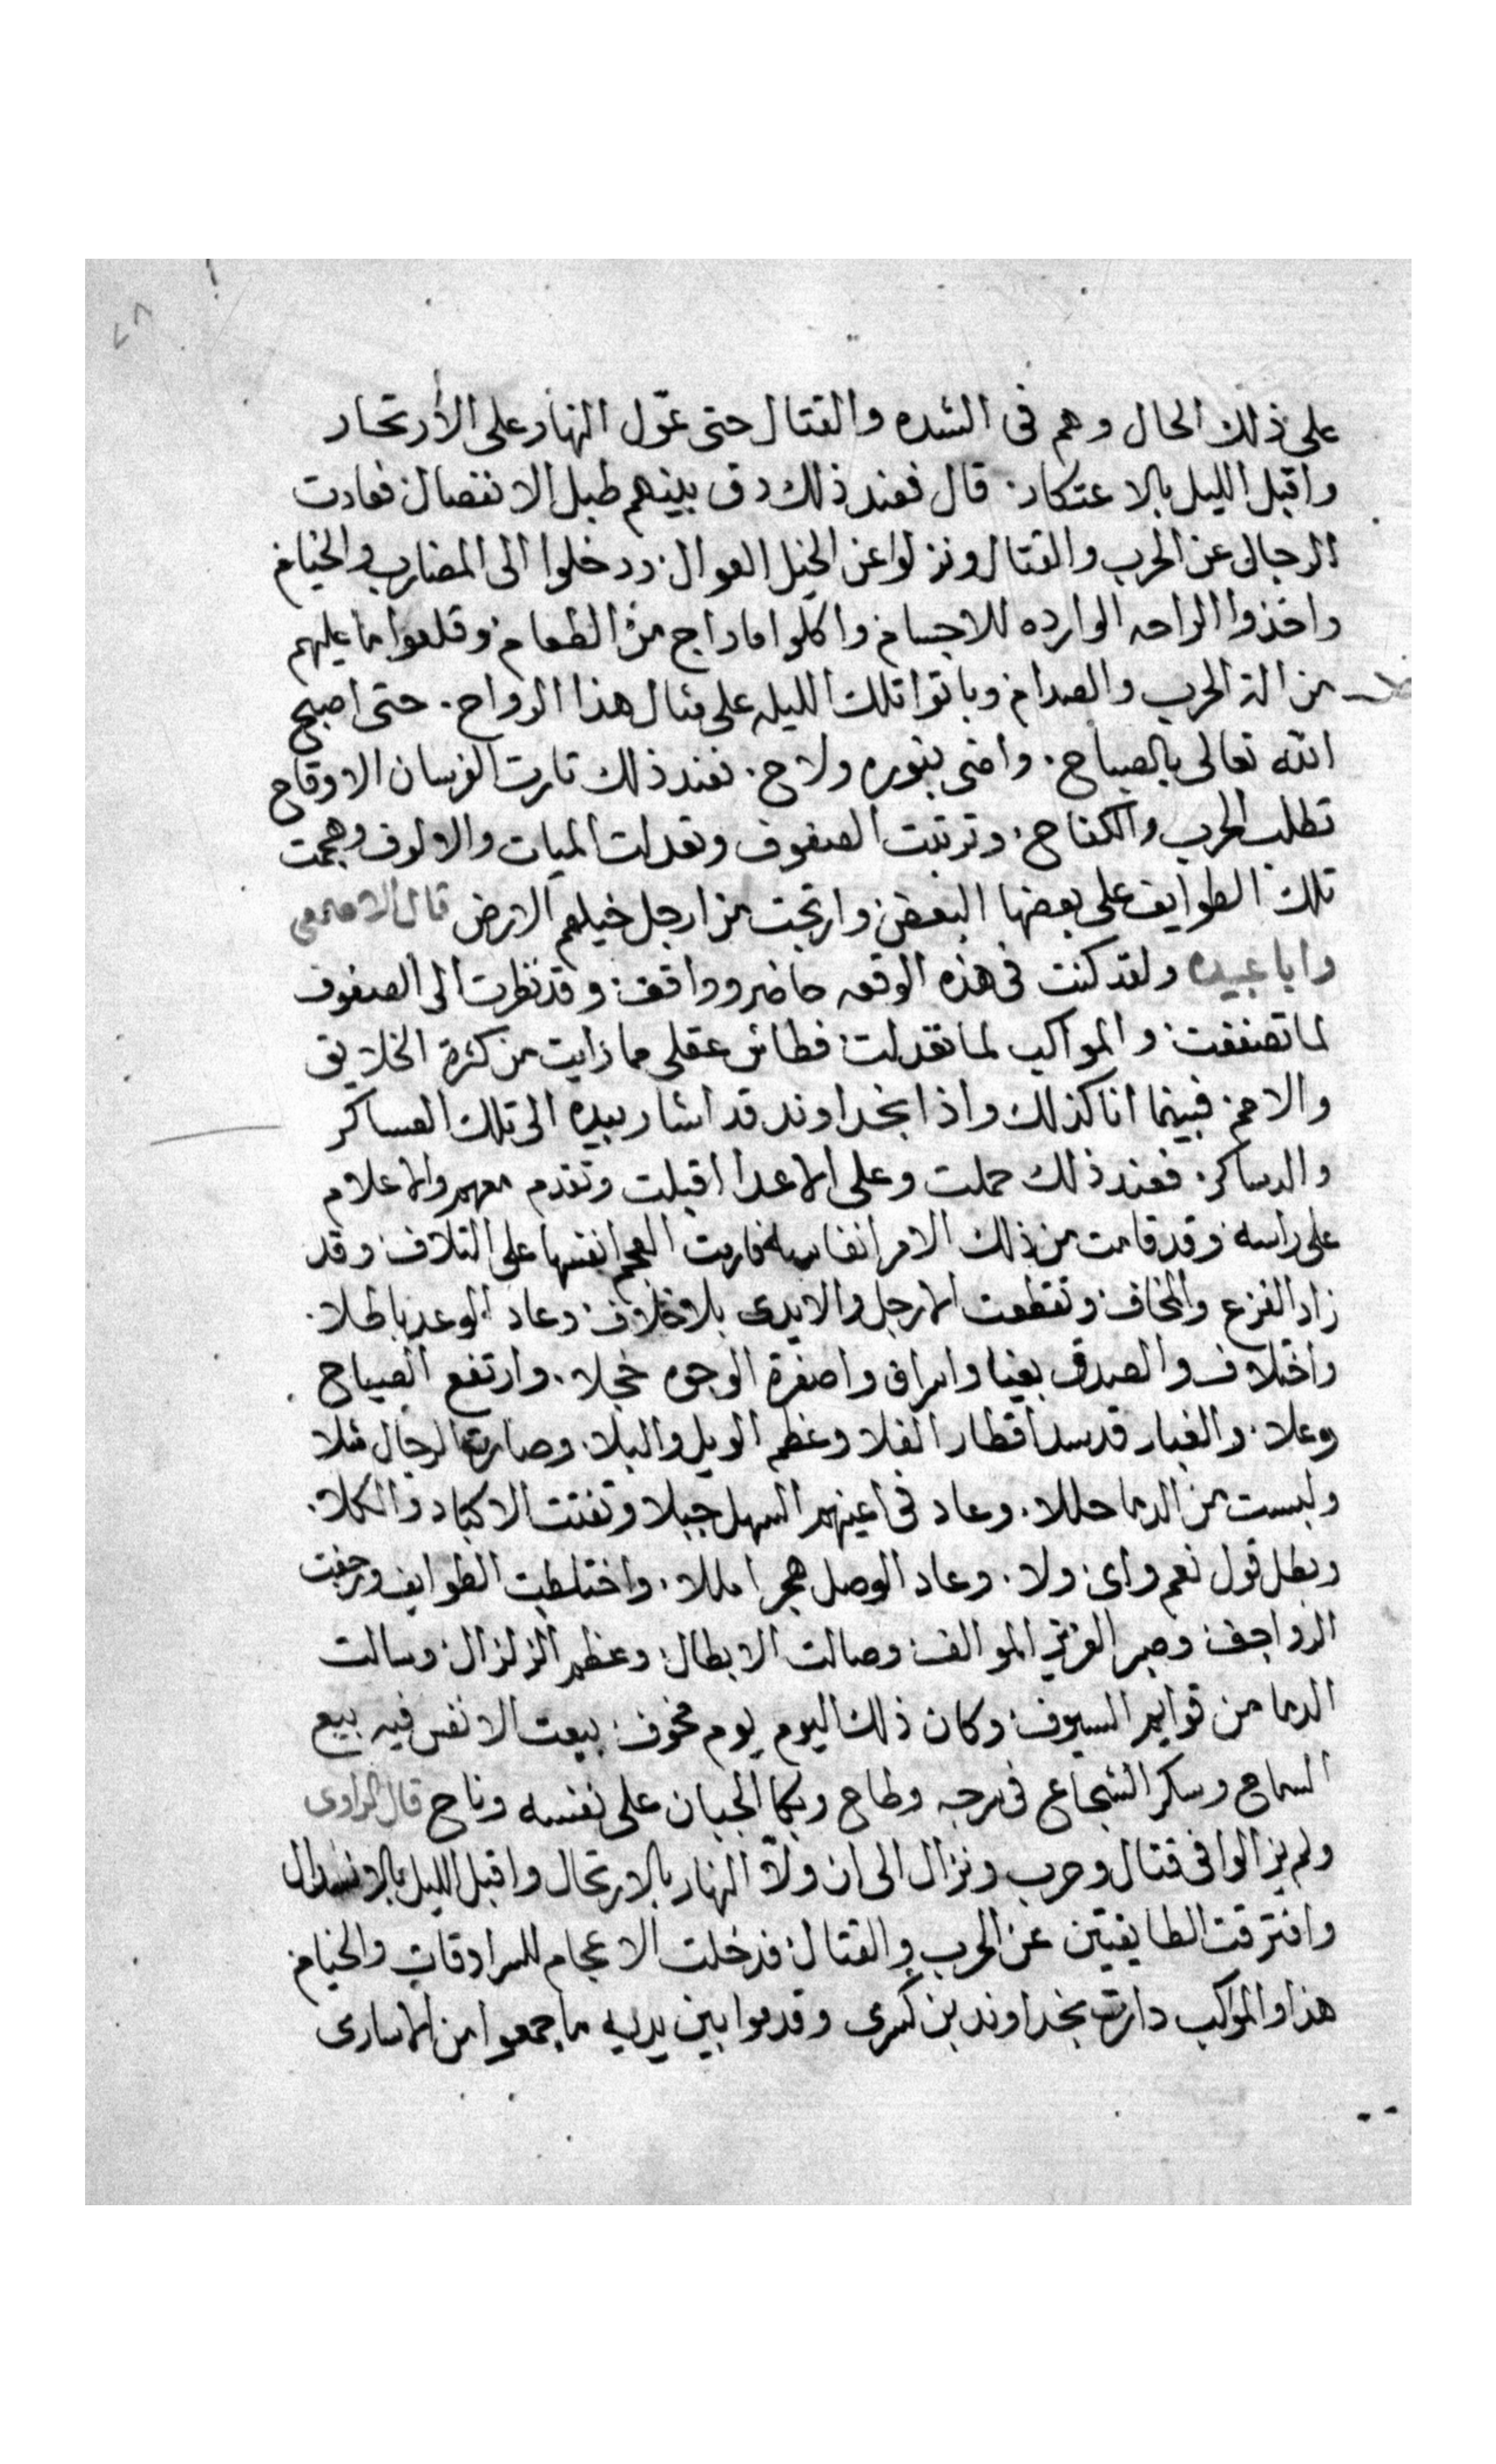 ٧٨
على ذلك الحال وهم فى الشده والقتال حتى عوّل النهار على الأرتحار
واقبل الليل بالاعتكار. قال فعند ذلك دق بينهم طبل الانفصال فعادت
الرجال عن الحرب والقتال ونزلوا عن الخيل العوال ودخلوا الى المضارب والخيام
واخذوا الراحه الوارده للاجسام واكلوا ما راج من الطعام وقلعوا ما عليهم
من الة الحرب والصدام وباتوا تلك الليله على مثال هذا الرواح. حتى اصبح
الله تعالى بالصباح. واضى بنوره ولاح. فعند ذلك ثارت الفرسان الاوقاح
تطلب الحرب والكفاح. وترتبت الصفوف وتعدلت الميات والالوف وهجمت
تلك الطوايف على بعضها البعض وارتجت من ارجل خيلهم الارض قال الاصمعى
وابا عبيده ولقد كنت فى هذه الوقعه حاضر وواقف وقد نظرت الى الصفوف
لما تصففت والمواكب لما تعدلت فطاش عقلى مما رايت من كثرة الخلايق
والامم فبينما انا كذلك واذا بخداوند قد اشار بيده الى تلك العساكر
والدساكر. فعند ذلك حملت وعلى الاعدا اقبلت وتقدم معهم والاعلام
على راسه وقد قامت من ذلك الامر انفاسه فارمت العجم انفسها على التلاف وقد
زاد الفزع والمخاف وتقطعت الارجل والايدى بلا خلاف وعاد الوعد باطلا.
واختلاف والصدق بغيا واسراف واصفرة الوجوه خجلا. وارتفع الصياح
وعلا. والغبار قد سد اقطار الفلا وعظم الويل والبلا. وصارت الرجال مثلا
ولبست من الدما حللا. وعاد فى اعينهم السهل جبلا وتفتت الاكباد والكلا.
وبطل قول نعم واى ولا. وعاد الوصل هجرا مللا. واختلطت الطوايف ورجفت
الرواجف وصبر الموالف وصالت الابطال وعظم الزلزال وسالت
الدما من قوايم السيوف وكان ذلك اليوم يوم مخوف بيعت الانفس فيه بيع
السماح وسكر الشجاع فى سرجه وطاح وبكا الجبان على نفسه وناح قال الراوى
ولم يزالوا فى قتال وحرب ونزال الى ان ولاّ النهار بالارتحال واقبل الليل بالانسدال
وافترقت الطايفيتين عن الحرب والقتال فدخلت الاعجام للسرادقات والخيام
هذا والمواكب دارت بخداوند بن كسرى وقدموا بين يديه ما جمعوا من الاسارى